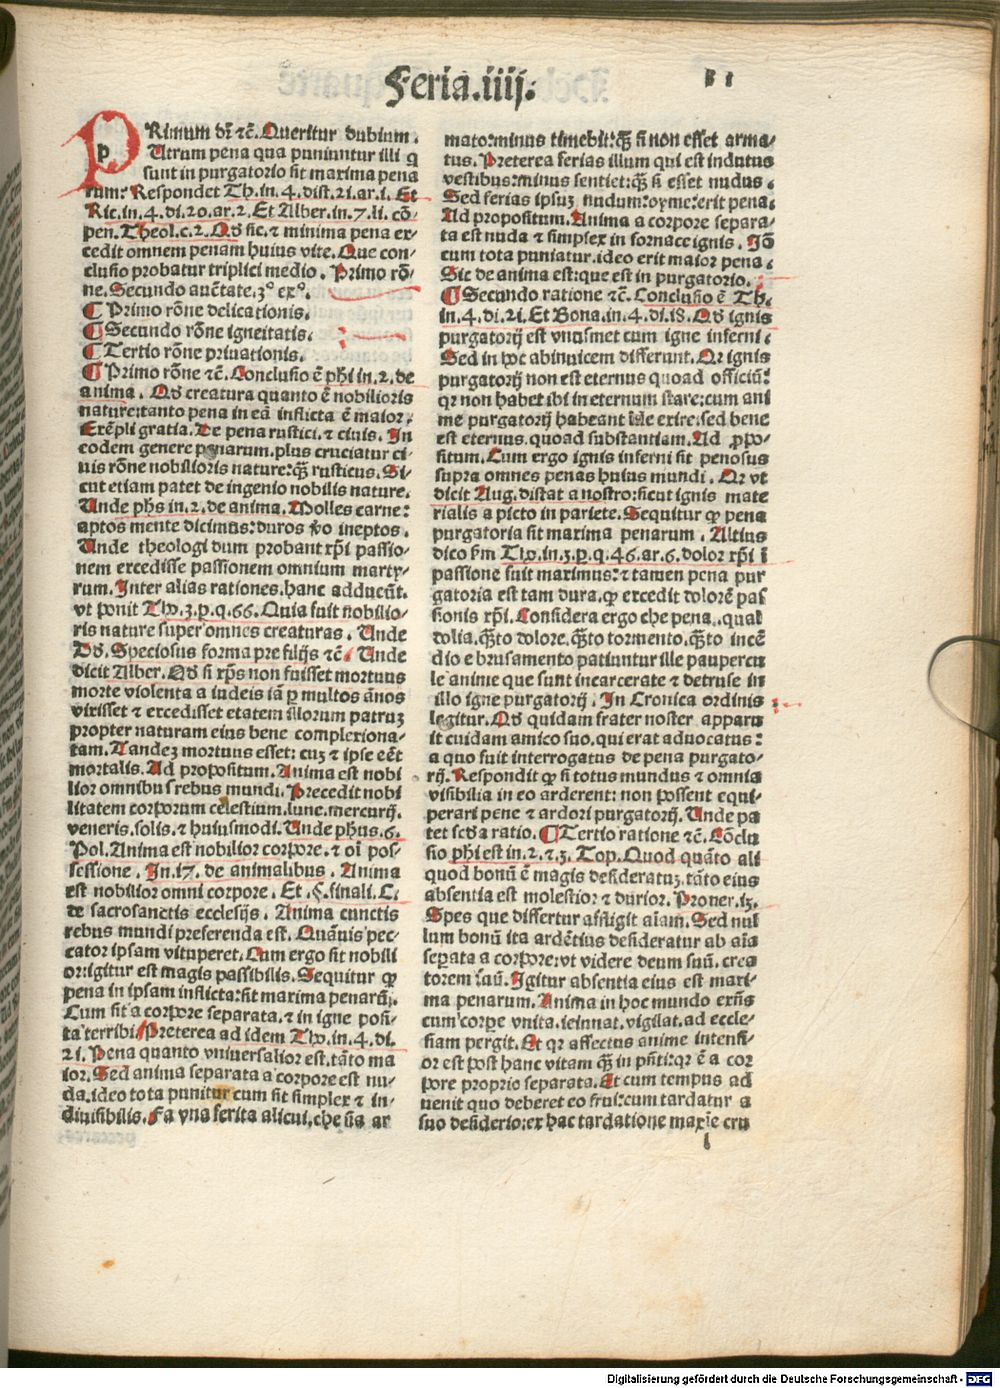 Feria.iiij.
81
PRimum dr̃ ⁊c̃. Queritur dubium.
Utrum pena qua puniuntur illi q
sunt in purgatorio sit maxima pena
rum: Respondet Th.in.4.dist.21.ar.1. Et
Ric.in.4.di.20.ar.2. Et Alber.in.7.li.cõ-
pen.Theol.c.2. Qđ sic. ⁊ minima pena ex-
cedit omnem penam huius vite. Que con-
clusio probatur triplici medio. Primo rõ-
ne. Secundo auc̃tate. 3° ex°.
¶ Primo rõne delicationis.
¶ Secundo rõne igneitatis.
¶ Tertio rõne priuationis.
¶ Primo rõne ⁊c̃. Conclusio ẽ phi in.2.de
anima. Qđ creatura quanto ẽ nobilioris
nature: tanto pena in eã inflicta ẽ maior.
Exẽpli gratia. De pena rustici. ⁊ ciuis. In
eodem genere penarum. plus cruciatur ci-
uis rõne nobilioris nature: q̃ʒ rusticus. Si-
cut etiam patet de ingenio nobilis nature.
Unde phs in.2.de anima. Molles carne:
aptos mente dicimus: duros ỹo ineptos.
Unde theologi dum probant xp̃i passio-
nem excedisse passionem omnium marty-
rum. Inter alias rationes. hanc adducũt.
vt ponit Tho.3.p.q.66. Quia fuit nobilio-
ris nature super omnes creaturas. Unde
Dđ. Speciosus forma pre filijs ⁊c̃. Unde
dicit Alber. Qđ si xp̃s non fuisset mortuus
morte violenta a iudeis iã p multos ãnos
vixisset ⁊ excedisset etatem illorum patruʒ
propter naturam eius bene complexiona-
tam. Tandeʒ mortuus esset: cuʒ ⁊ ipse eẽt
mortalis. Ad propositum. Anima est nobi
lior omnibus rebus mundi. Precedit nobi
litatem corporum celestium. lune. mercurij.
veneris. solis. ⁊ huiusmodi. Unde phus.6.
Pol. Anima est nobilior corpore. ⁊ oi pos-
sessione. In.17. de animalibus. Anima
est nobilior omni corpore. Et.C.finali.C.
de sacrosanctis ecclesijs. Anima cunctis
rebus mundi preferenda est. Quãuis pec-
cator ipsam vituperet. Cum ergo sit nobili
or: igitur est magis passibilis. Sequitur ꝙ
pena in ipsam inflicta: sit maxima penarũ.
Cum sit a corpore separata. ⁊ in igne posi-
ta terribi. Preterea ad idem Tho.in.4.di.
21. Pena quanto vniuersalior est. tãto ma
ior. Sed anima separata a corpore est nu-
da. ideo tota punitur cum sit simplex ⁊ in-
diuisibilis. Fa vna ferita alicui. che sia ar
mato: minus timebit: q̃ʒ si non esset arma-
tus. Preterea ferias illum qui est indutus
vestibus: minus sentiet: q̃ʒ si esset nudus.
Sed ferias ipsuʒ nudum: oyme: erit pena.
Ad propositum. Anima a corpore separa-
ta est nuda ⁊ simplex in fornace ignis. Iõ
cum tota puniatur. ideo erit maior pena.
Sic de anima est: que est in purgatorio.
¶ Secundo ratione ⁊c̃. Conclusio ẽ Th.
in.4.di.21. Et Bona.in.4.di.18. Qđ ignis
purgatorij est vnusmet cum igne inferni.
Sed in hoc abinuicem differunt. Qr ignis
purgatorij non est eternus quoad officiũ:
qr non habet ibi in eternum stare: cum ani
me purgatorij habeant inde exire. sed bene
est eternus. quoad substantiam. Ad ꝓpo-
situm. Cum ergo ignis inferni sit penosus
supra omnes penas huius mundi. Qr vt
dicit Aug. distat a nostro: sicut ignis mate
rialis a picto in pariete. Sequitur ꝙ pena
purgatoria sit maxima penarum. Altius
dico ẜm Tho.in.3.p.q.46.ar.6. dolor xp̃i ĩ
passione fuit maximus: ⁊ tamen pena pur
gatoria est tam dura. ꝙ excedit dolorẽ pas
sionis xp̃i. Considera ergo che pena. qual
dolia. q̃ʒto dolore. q̃ʒto tormento. q̃ʒto incẽ
dio e brusamento patiuntur ille paupercu
le anime que sunt incarcerate ⁊ detruse in
illo igne purgatorij. In Cronica ordinis
legitur. Qđ quidam frater noster apparu
it cuidam amico suo. qui erat aduocatus:
a quo fuit interrogatus de pena purgato-
rij. Respondit ꝙ si totus mundus ⁊ omnia
visibilia in eo arderent: non possent equi-
perari pene ⁊ ardori purgatorij. Unde pa
tet scđa ratio. ¶ Tertio ratione ⁊c̃. Cõclu
sio phi est in.2.⁊.3. Top. Quod quãto ali
quod bonũ ẽ magis desideratuʒ. tãto eius
absentia est molestior ⁊ durior. Prouer.13.
Spes que differtur affligit aĩam. Sed nul
lum bonũ ita ardẽtius desideratur ab aĩa
sepata a corpore: vt videre deum suũ. crea
torem suũ. Igitur absentia eius est maxi-
ma penarum. Anima in hoc mundo exñs
cum corpe vnita. ieiunat. vigilat. ad eccle-
siam pergit. Et qr affectus anime intensi-
or est post hanc vitam q̃ʒ in pñti: qr ẽ a cor
pore proprio separata. Et cum tempus ad
uenit quo deberet eo frui: cum tardatur a
suo desiderio: ex hac tardatione maxĩe cru
l
Digitalisierung gefördert durch die Deutsche Forschungsgemeinschaft - DFG